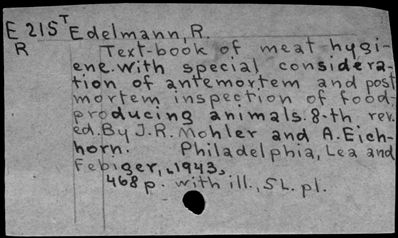 E 21S T Edelmann, R.
R Text-book of meat hygi-
ene. with special considera-
tion of antemortem and post
mortem inspection of food-
producing animals. 8-th rev.
ed. By J.R. Mohler and A. Eich-
horn. Philadelphia, Lea and
Febiger, 1943,
468 p. with ill., 5 L. pl.